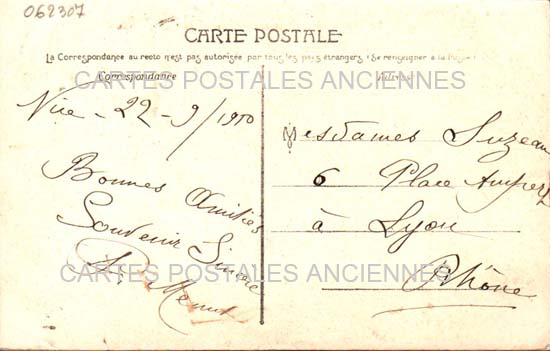 062307
CARTE POSTALE
La Correspondance au recto n'est pas autorisée par tous les pays étrangers (Se renseigner à la Poste)
Correspondance
Adresse
CARTES POSTALES ANCIENNES
Nice - 22 - 9/1910
Bonnes Amitiés
Souvenir Sincère
Mesdames Suzeau
6 Place Ampère
à Lyon
Rhône
CARTES POSTALES ANCIENNES